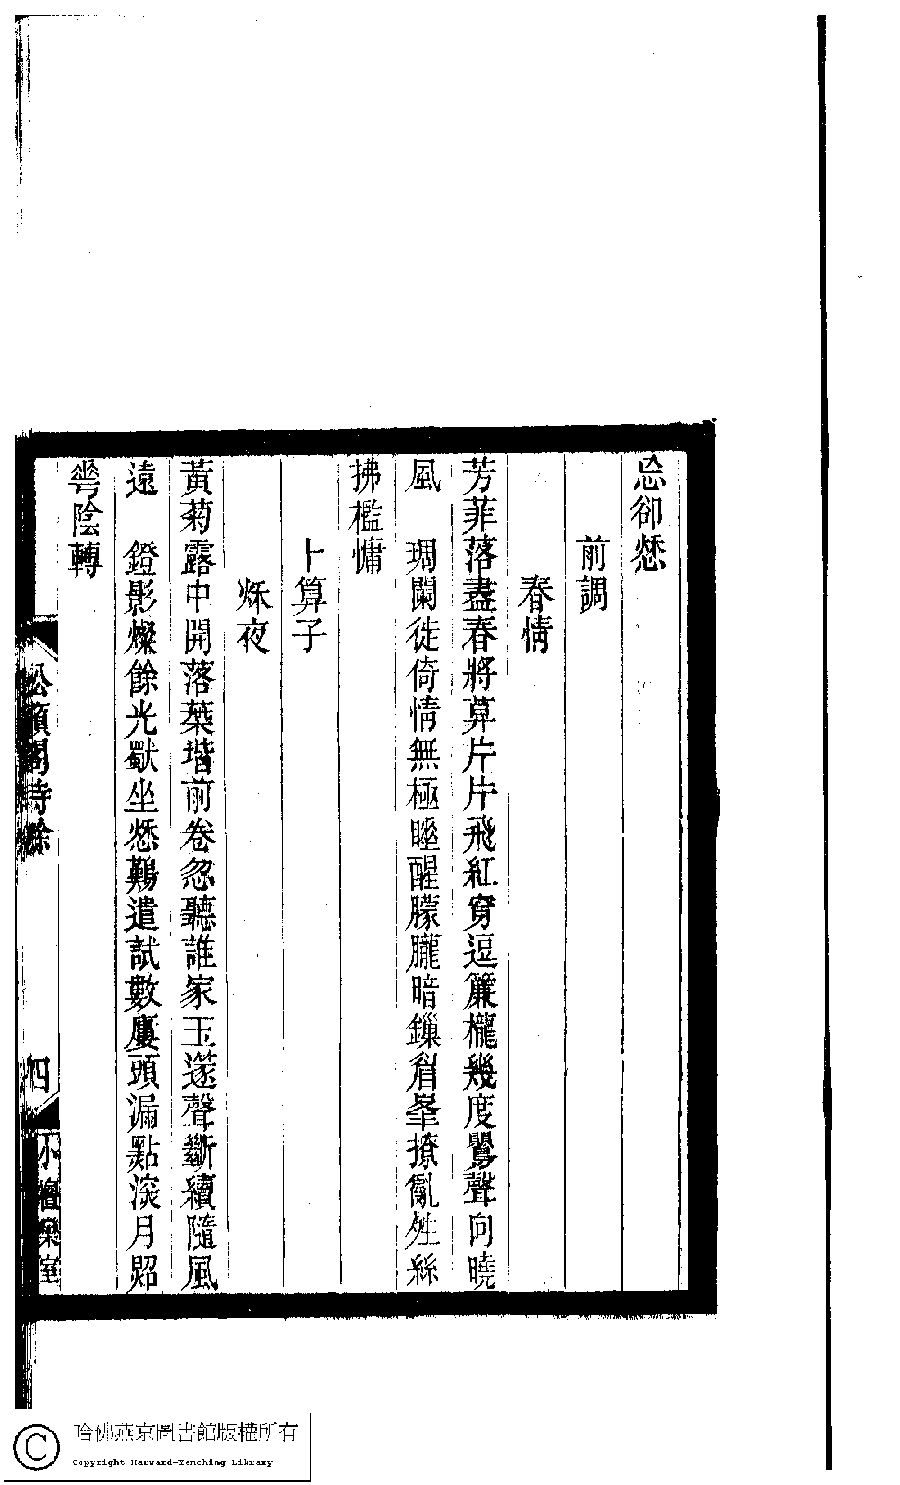 忘卻愁
前調
春情
芳菲落盡春將莫片片飛紅穿逗簾櫳幾度鶯聲向曉
風　琱闌徙倚情無極睡醒朦朧暗鎖眉峯撩亂𡖖絲
拂檻慵
卜算子
烁夜
黃菊露中開落葉堦前卷忽聽誰家玉邃聲斷續隨風
遠　鐙影燦餘光獣坐愁難遣試數廔頭漏點深月照
㗾陰轉
松籟閣詩餘
四
小檀欒室
哈佛燕京圖書館版權所有
Copyright Harvard-Yenching Library